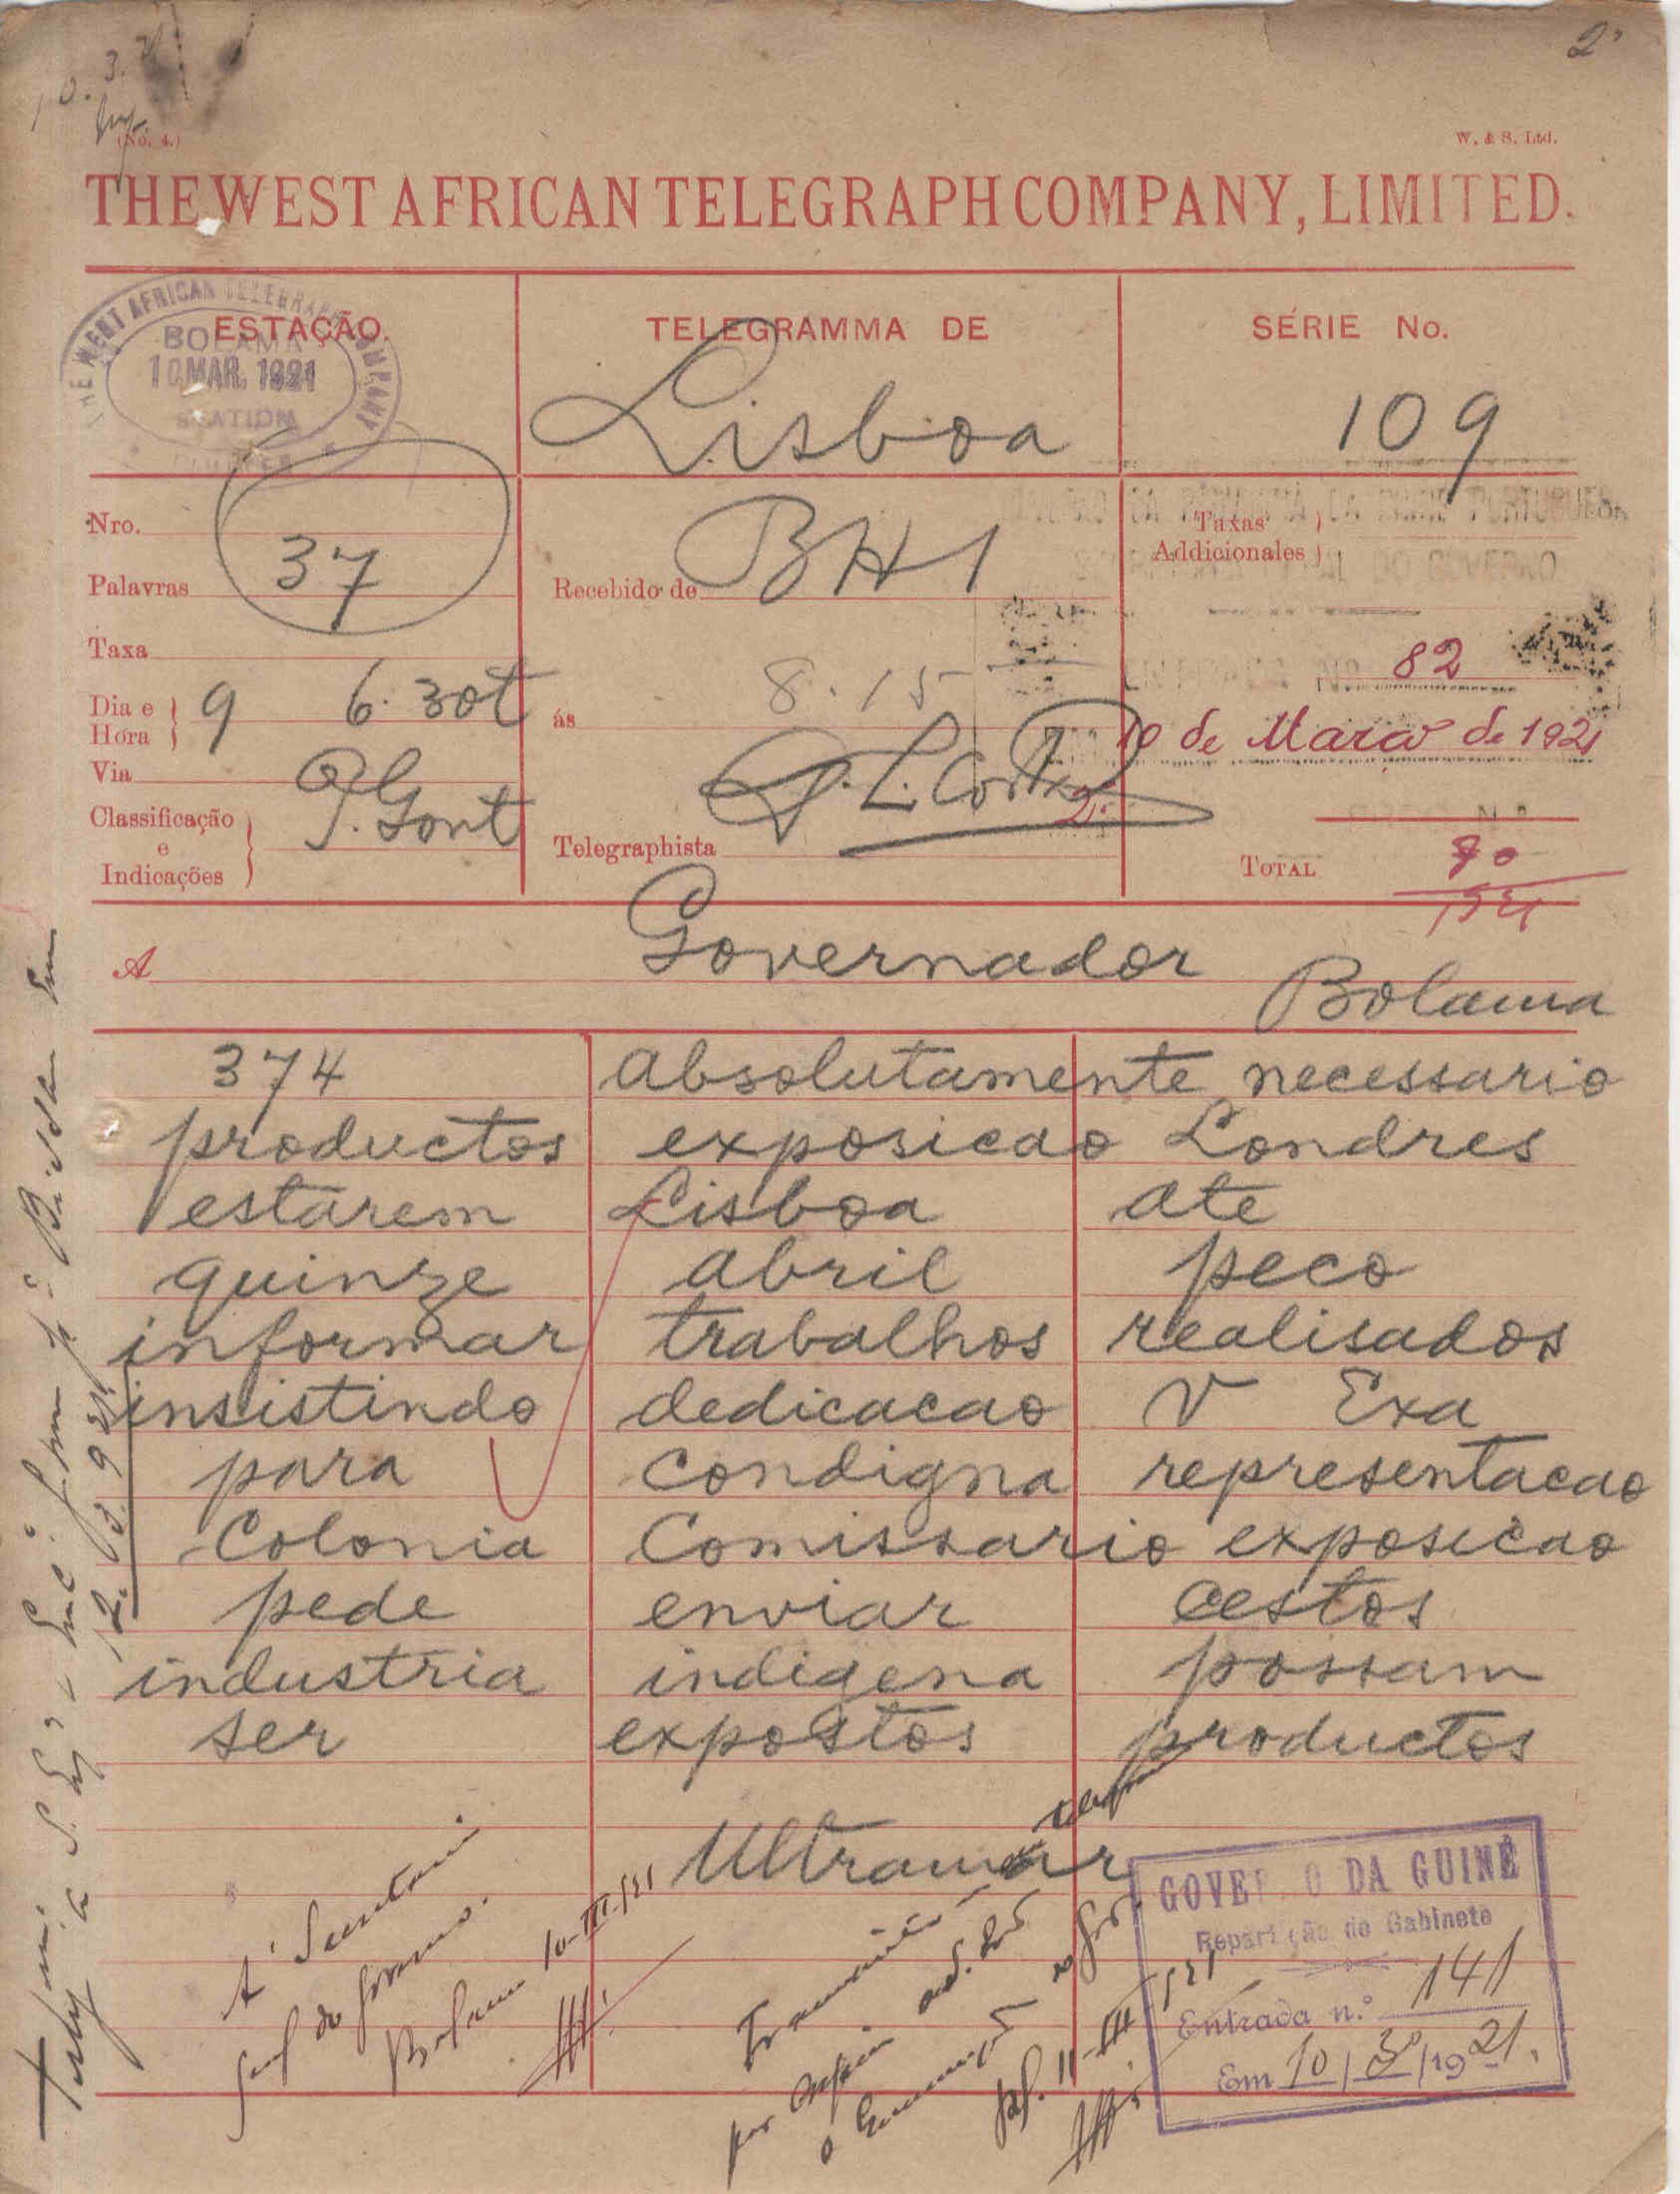 2º
10.3.21
(No. 4.)
W. & S. Ltd.
THE WEST AFRICAN TELEGRAPH COMPANY, LIMITED.
ESTAÇÃO.
TELEGRAMMA DE
SÉRIE No.
THE WEST AFRICAN TELEGRAPH COMPANY
BOLAMA
10 MAR. 1921
STATION
Lisboa
109
Nro.
Palavras 37
Recebido de BH1
Taxas
Addicionales
Taxa
82
Dia e Hora 9 6.30t
ás 8.15
10 de Março de 1921
Via
Classificação e Indicações P. Gont
Telegraphista
TOTAL
A Governador
Bolama
374 Absolutamente necessario
productos exposicao Londres
estarem Lisboa ate
quinze abril peco
informar trabalhos realisados
insistindo dedicacao V Exa
para condigna representacao
Colonia Comissario exposicao
pede enviar cestos
industria indigena possam
ser expostos productos
Ultramar
A' Secretaria
do Governo.
Bolama 10-III-921
GOVERNO DA GUINÉ
Repartição do Gabinete
Entrada n.º 141
Em 10/3º/1921.
11-III-921
12.3.921